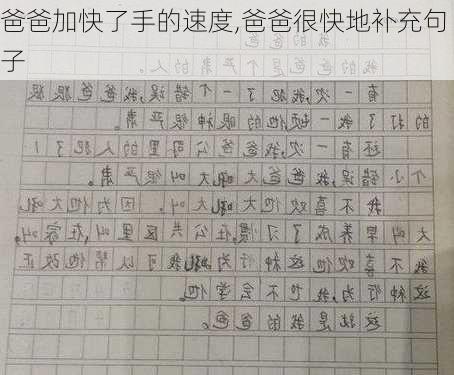 爸爸加快了手的速度,爸爸很快地补充句
子
我的爸爸
我的爸爸是个严肃的人。
有一次我犯了一个错误,我爸爸狠狠
的打了我一顿他的眼神很严肃。
还有一次,我爸爸公司里的人犯了1
个小错误,我爸爸大吼大叫很严肃。
我不喜欢他大吼大叫。因为他大吼
大叫早养成了习惯,在公共区里叫,在家叫。
我不喜欢他这种行为,我可以帮他改正
这种行为,我也不会学他。
这就是我的爸爸。